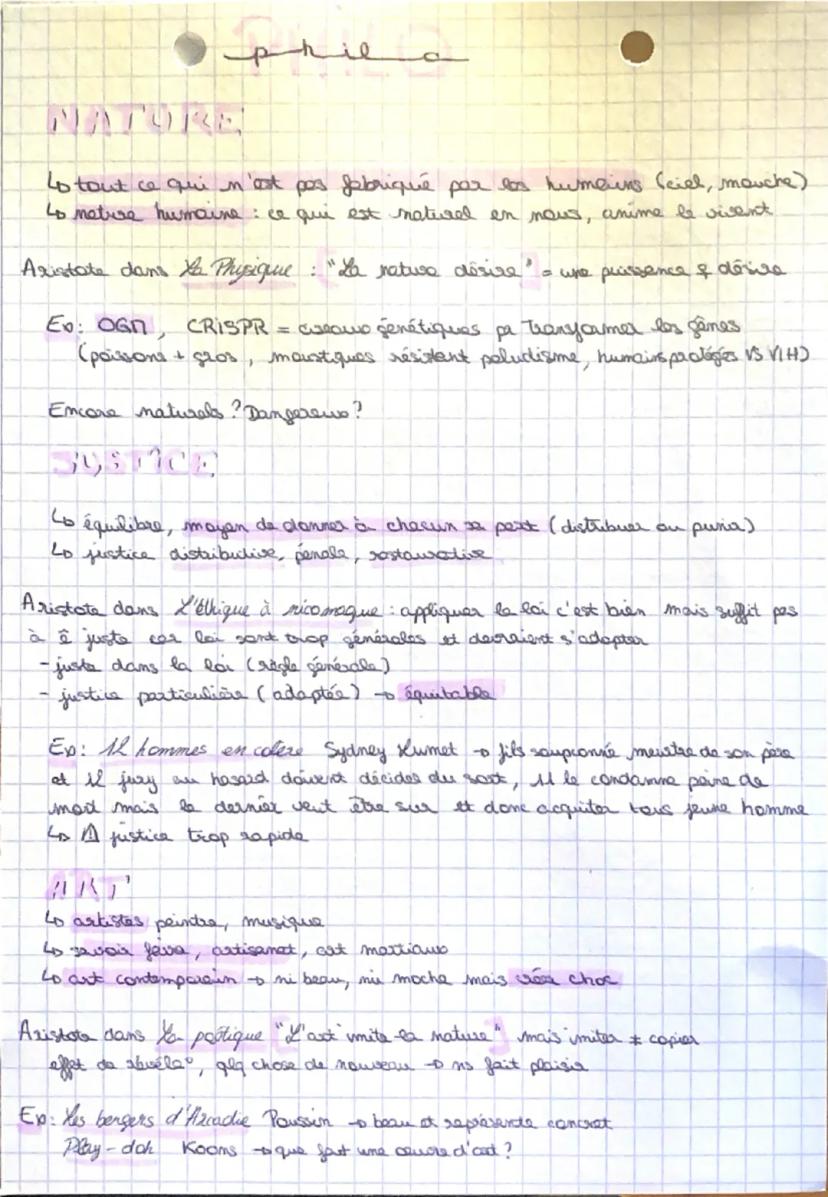 philo
NATURE
↳ tout ce qui n'est pas fabriqué par les humains (ciel, mouche)
↳ nature humaine : ce qui est naturel en nous, anime le vivant
Aristote dans La Physique : "La nature désire" = une puissance q désire
Ex: OGM, CRISPR = ciseaux génétiques pr transformer les gênes
(poissons + gros, moustiques résistent paludisme, humains protégés VS VIH)
Encore naturels ? Dangereux ?
JUSTICE
↳ équilibre, moyen de donner à chacun sa part (distribuer ou punir)
↳ justice distributive, pénale, restaurative
Aristote dans L'éthique à nicomaque : appliquer la loi c'est bien mais suffit pas
à ê juste car loi sont trop générales et devraient s'adapter
- juste dans la loi (règle générale)
- justice particulière (adaptée) → équitable
Ex: 12 hommes en colère Sydney Lumet → fils soupçonné meurtre de son père
et 12 jury au hasard doivent décider du sort, 11 le condamne peine de
mort mais le dernier veut être sur et donc acquiter tous jeune homme
↳ ⚠ justice trop rapide
ART
↳ artistes peintre, musique
↳ savoir faire, artisanat, art martiaux
↳ art contemporain → ni beau, ni moche mais crée choc
Aristote dans La poétique "L'art imite la nature" mais imiter ≠ copier
effet de révéla°, qlq chose de nouveau → ns fait plaisir
Ex: Les bergers d'Arcadie Poussin → beau et représente concret
Play-doh Koons → que fait une œuvre d'art ?